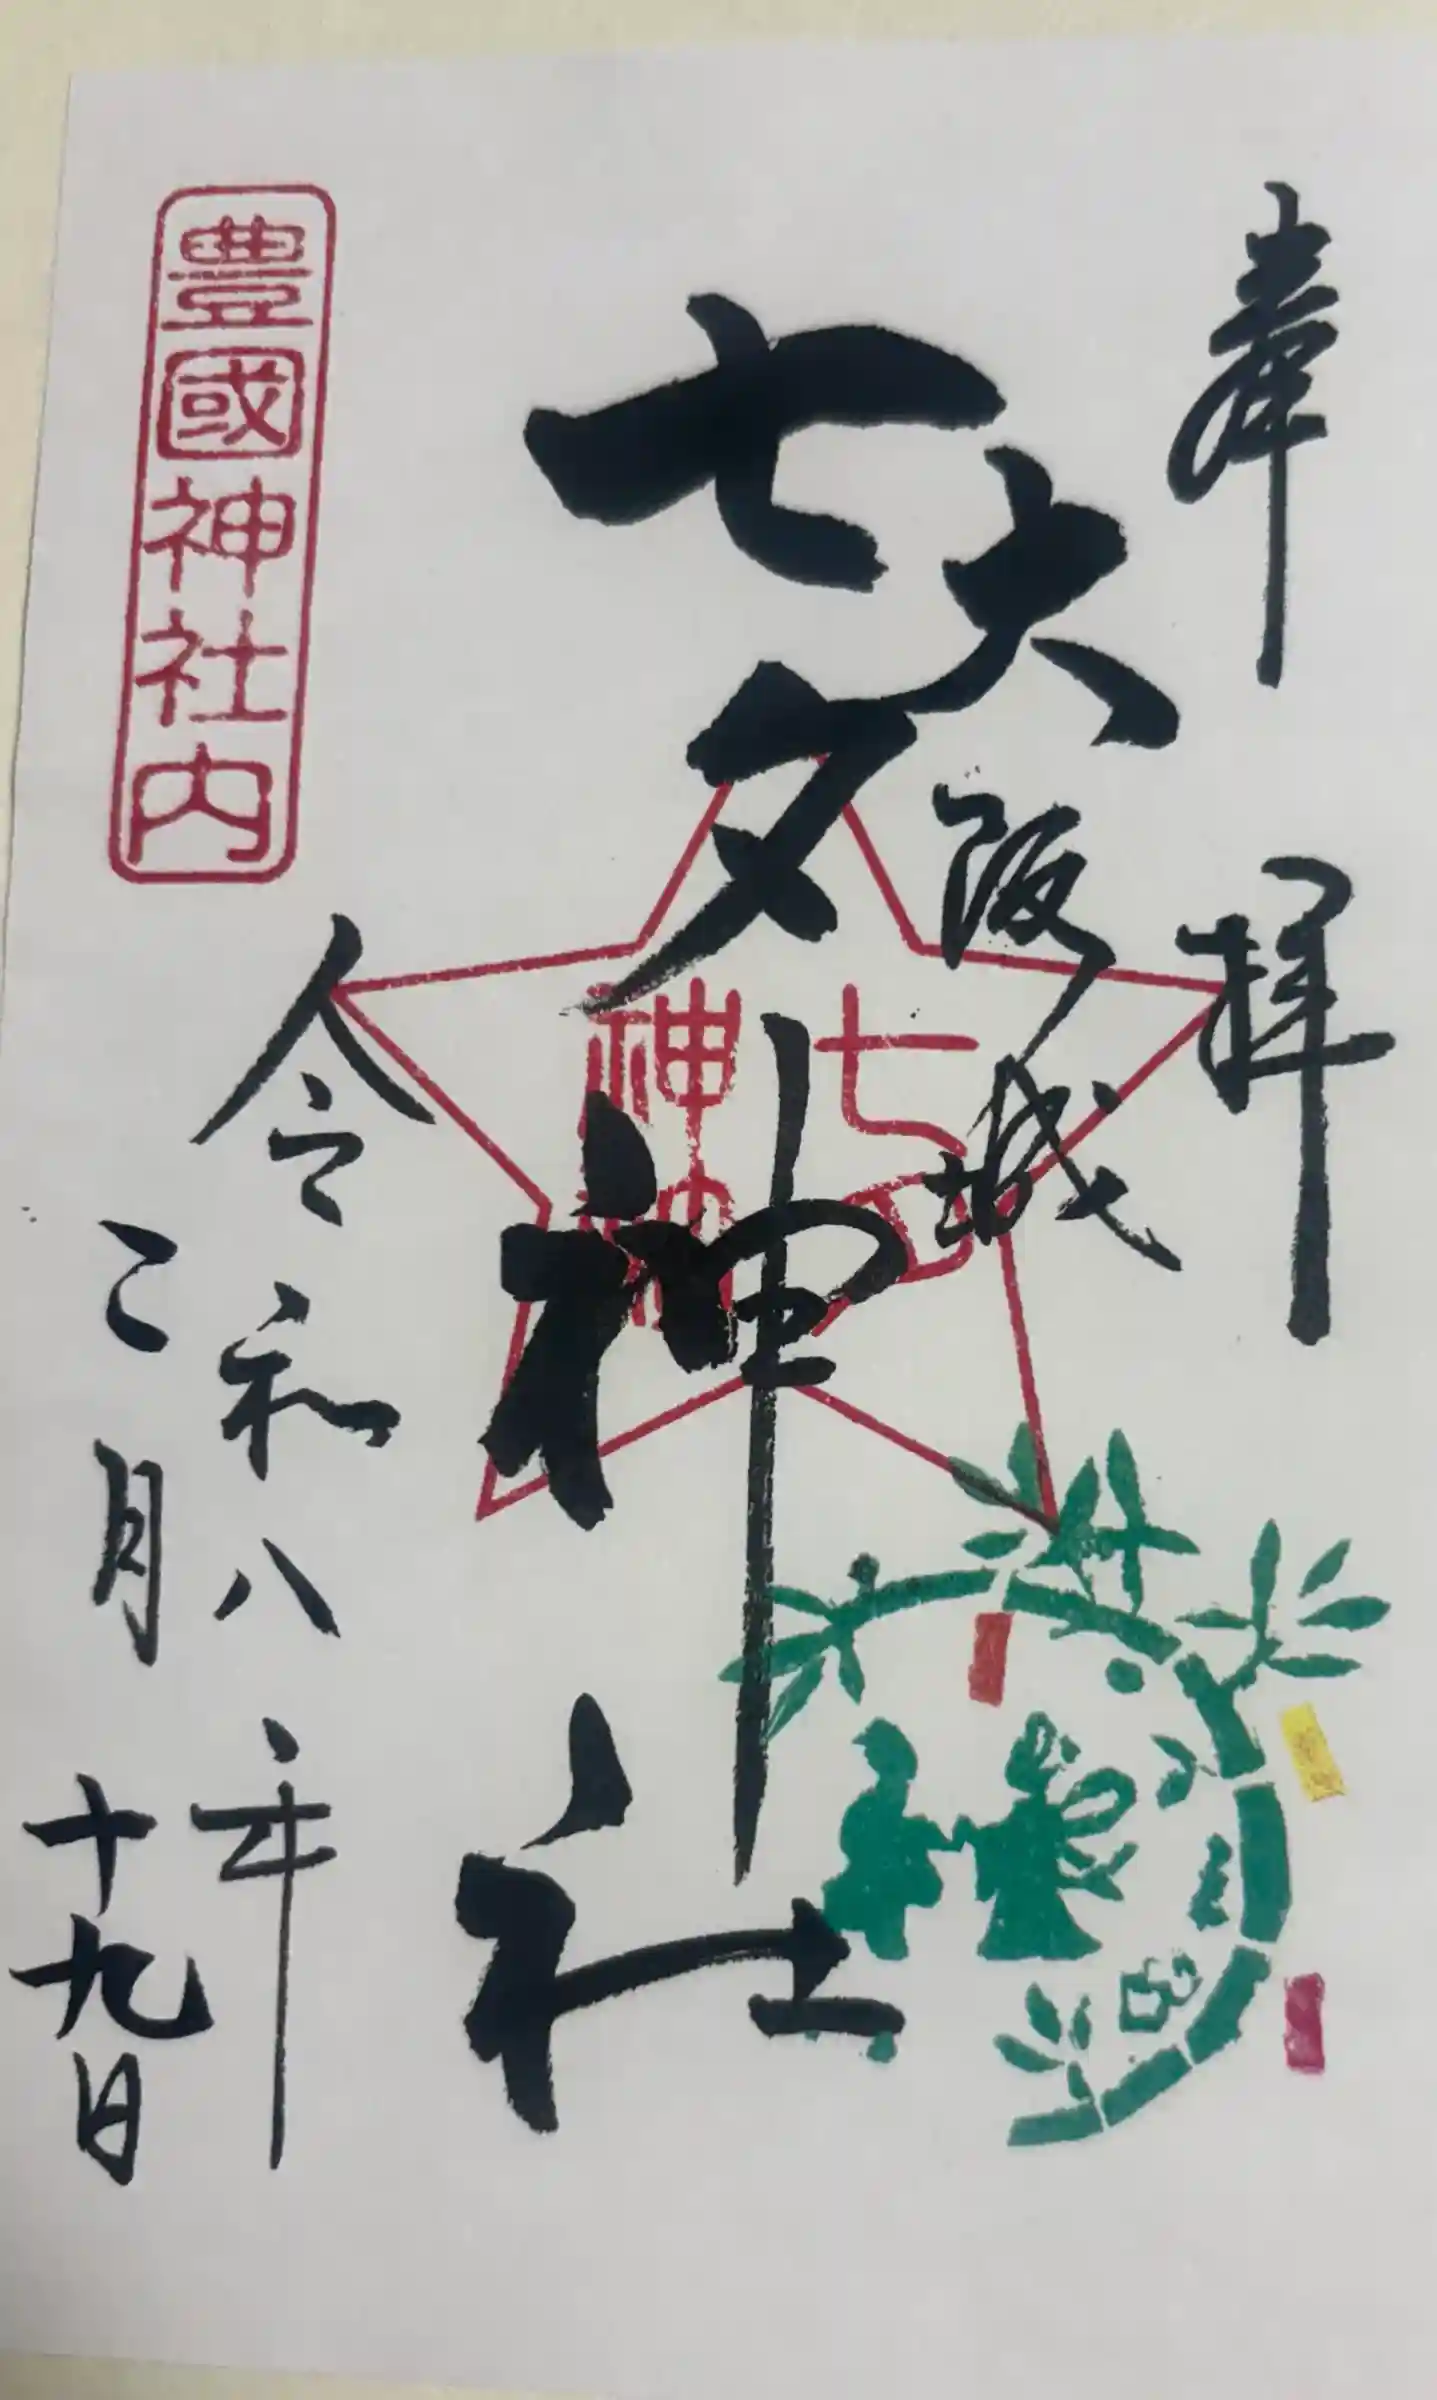 奉拝
大阪城
七夕神社
七夕
神社
令和八年
二月十九日
豊國神社内